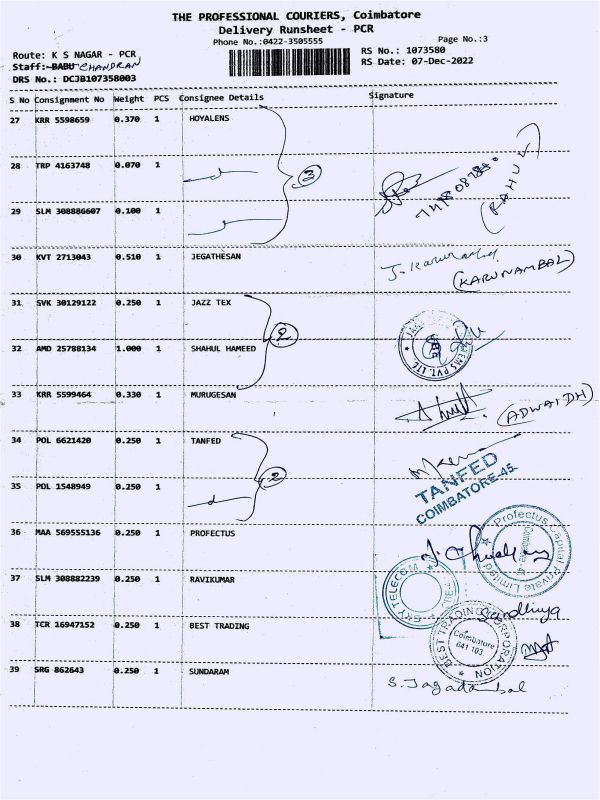 THE PROFESSIONAL COURIERS, Coimbatore
Delivery Runsheet - PCR
Phone No.:0422-3505555
Page No.:3
Route: K S NAGAR - PCR
RS No.: 1073580
Staff: BABU CHANDRAN
RS Date: 07-Dec-2022
DRS No.: DCJB107358003
S No Consignment No Weight PCS Consignee Details Signature
27 KRR 5598659 0.370 1 HOYALENS
28 TRP 4163748 0.070 1
3
(RAHUL)
29 SLM 308886607 0.100 1
30 KVT 2713043 0.510 1 JEGATHESAN
(KARUNAMBAL)
31 SVK 30129122 0.250 1 JAZZ TEX
2
32 AMD 25788134 1.000 1 SHAHUL HAMEED
33 KRR 5599464 0.330 1 MURUGESAN
(ADWAIDH)
34 POL 6621420 0.250 1 TANFED
2
TANFED
COIMBATORE-45
35 POL 1548949 0.250 1
36 MAA 569555136 0.250 1 PROFECTUS
Profectus Capital Private Limited
Coimbatore - 45
37 SLM 308882239 0.250 1 RAVIKUMAR
SKY TELECOM
Sandhiya
38 TCR 16947152 0.250 1 BEST TRADING
BEST TRADING CORPORATION
Coimbatore
641 103
39 SRG 862643 0.250 1 SUNDARAM
S. Jagadambal